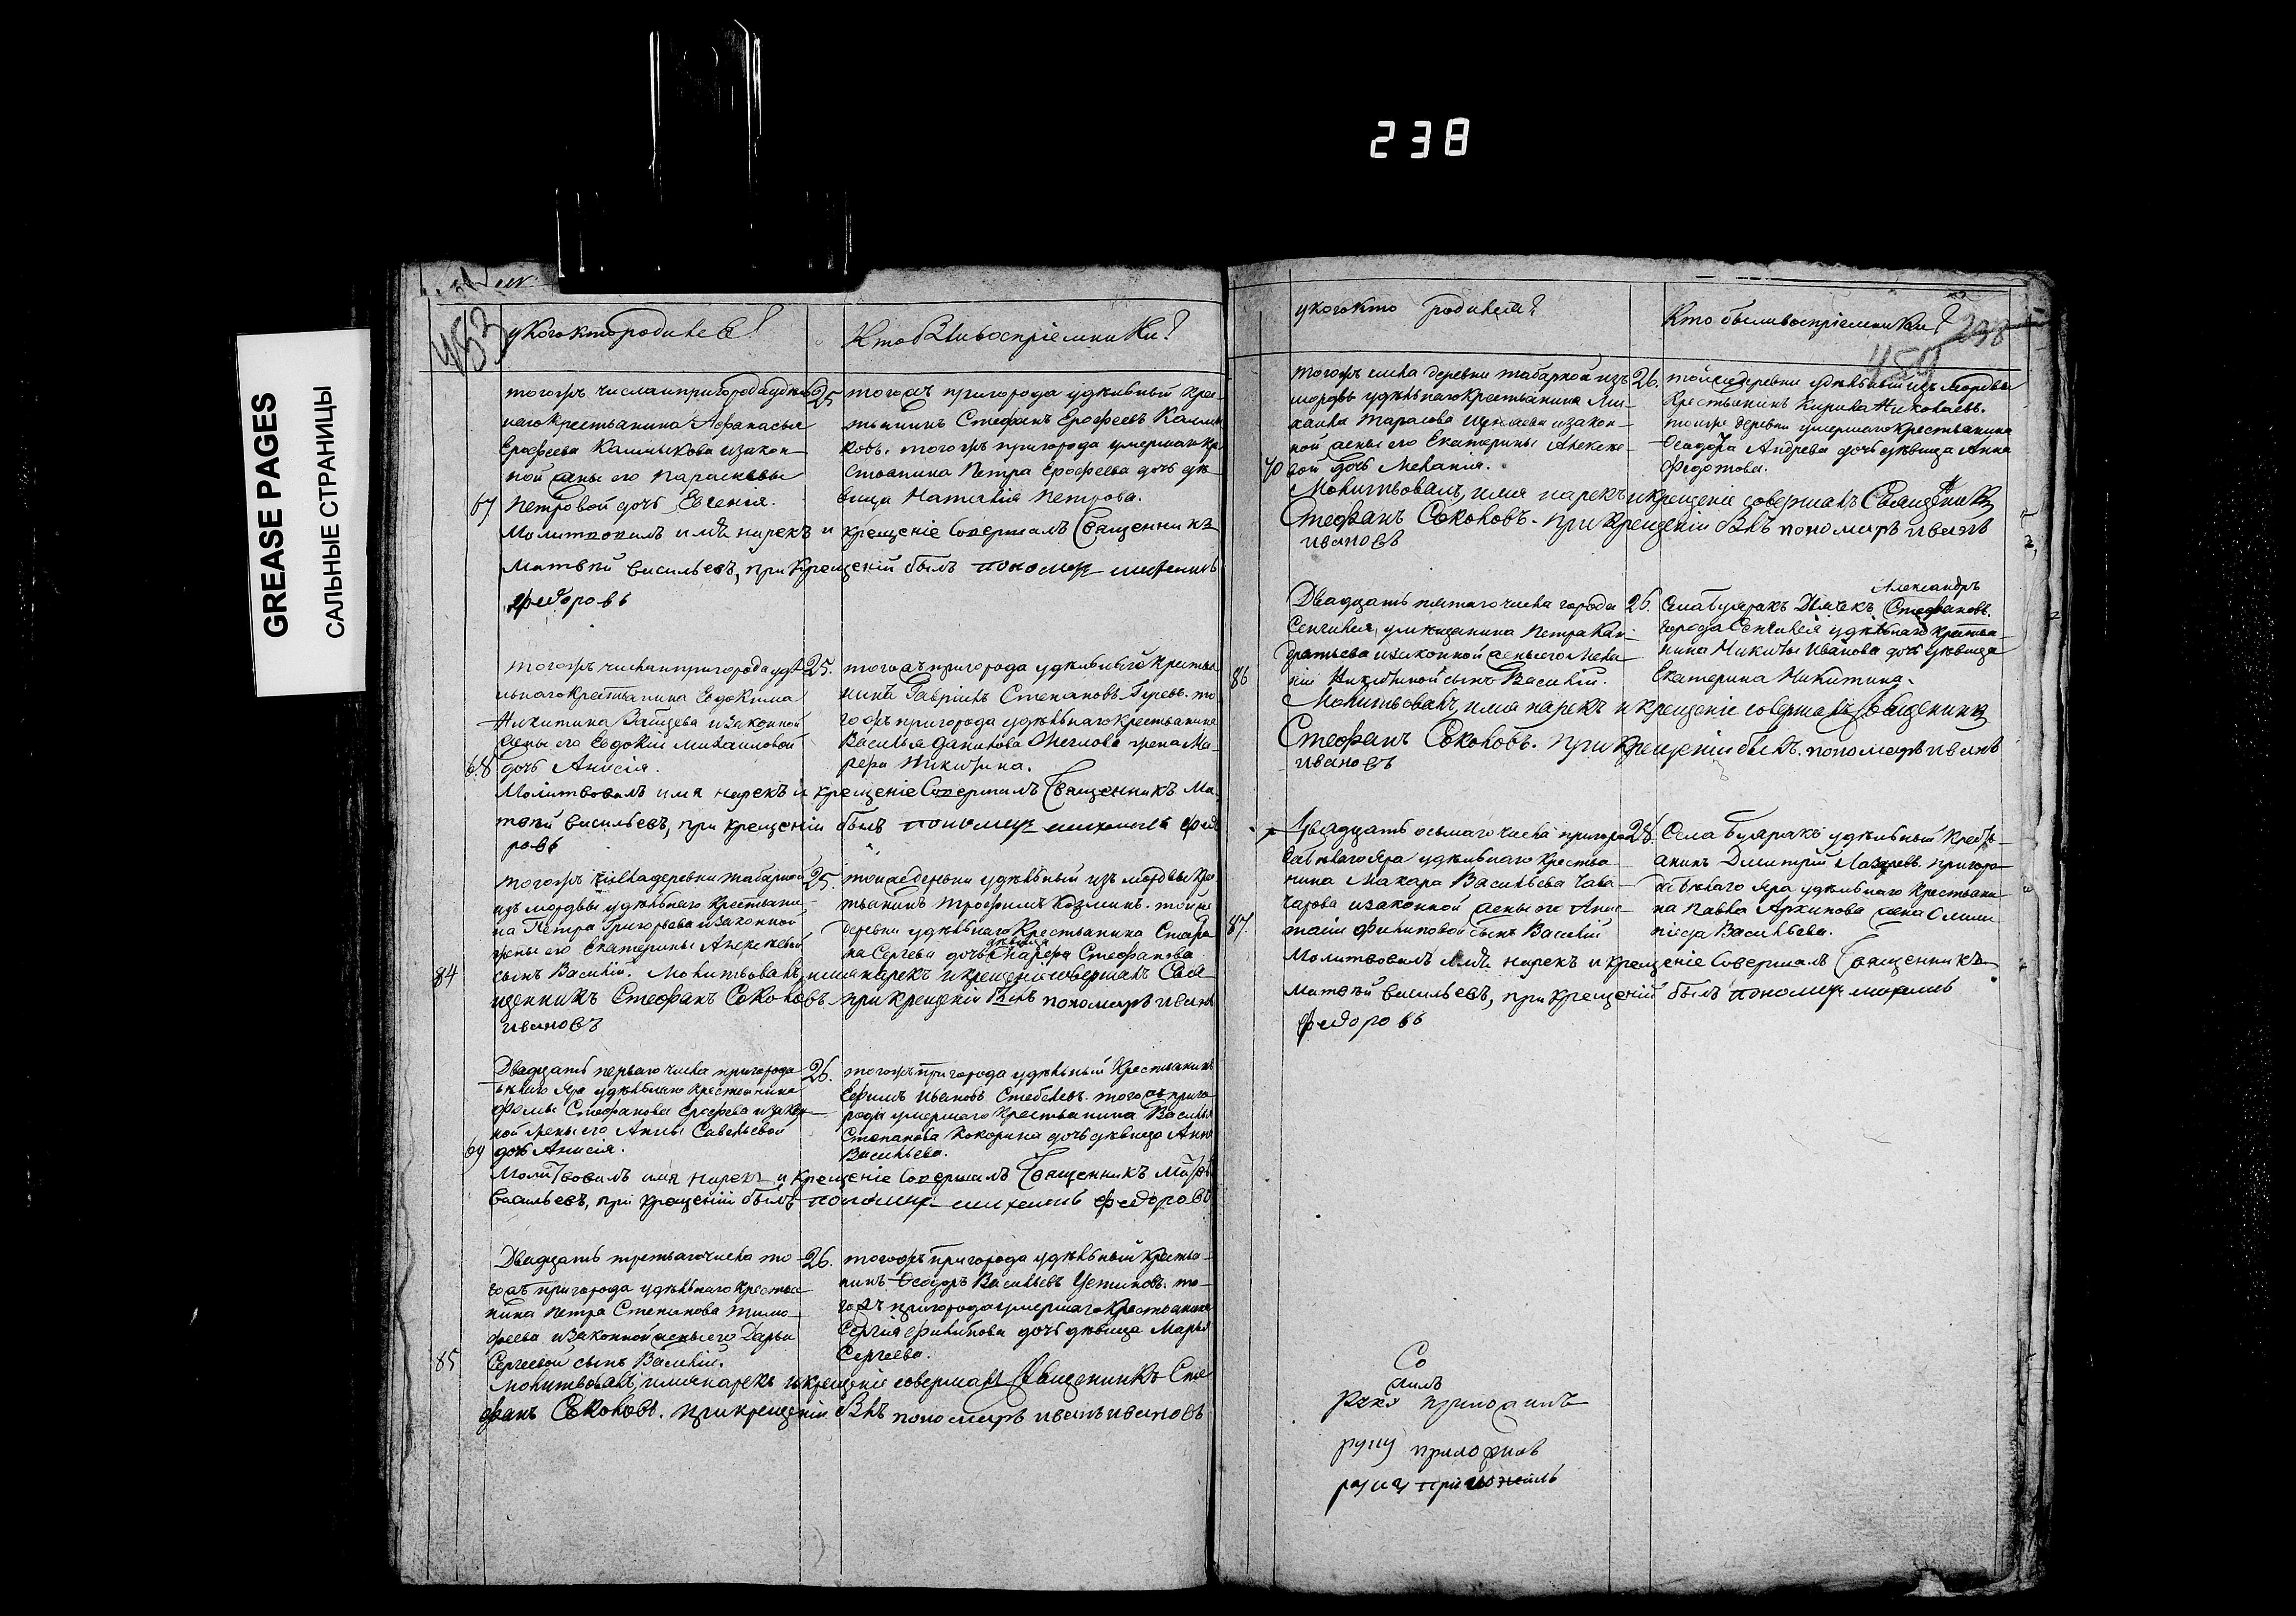 238
GREASE PAGES
САЛЬНЫЕ СТРАНИЦЫ
453
у кого кто родился?
Кто были воспріемники?
тогожъ числа и пригорода удѣль
наго крестьянина Афанасья
Ерофеева Калмыкова и закон
ной жены его Параскевы
67 Петровой дочь Евгенія.
25 тогожъ пригорода удѣльный кре
стьянинъ Стефанъ Ерофеевъ Калмы
ковъ. тогожъ пригорода умершаго кре
стьянина Петра Ерофеева дочь дѣ
вица Наталія Петрова.
Молитвовалъ имя нарекъ и крещеніе Совершалъ Священникъ
Матвѣй Васильевъ, при крещеніи былъ пономарь михаилъ
федоровъ
тогожъ числа и пригорода удѣ
льнаго крестьянина Евдокима
Никитина Зайцева и законной
жены его Евдокіи Михаиловой
68 дочь Анисія.
25. тогожъ пригорода удѣльный крестья
нинъ Гаврiилъ Степановъ то
гожъ пригорода удѣльнаго крестьянина
Василья Данилова жена Ма
Никитина.
Молитвовалъ имя нарекъ и крещеніе Совершилъ Священникъ Ма
твѣй Васильевъ, при крещеніи былъ пономарь михаилъ федо
ровъ
тогожъ числа деревни табарной
изъ мордвы удѣльнаго крестьяни
на Петра Григорьева и законной
жены его Екатерины Алексѣевой
84 сынъ Василій. Молитвовалъ, имя нарекъ и крещеніе совершалъ Свя
щенникъ Стефанъ Соколовъ. при крещеніи былъ пономарь иванъ
ивановъ
25. тойже деревни удѣльный изъ мордвы кре
стьянинъ Трофимъ Козминъ. тойже
деревни удѣльнаго крестьянина Стефа
на Сергеева дочь дѣвица Стефанова
Двадцать перваго числа пригорода
Бѣлаго Яра удѣльнаго крестьянина
Фомы Стефанова Ерофеева и закон
ной жены его Анны Савельевой
69 дочь Анисія.
26. тогожъ пригорода удѣльный крестьянинъ
Ефимъ Ивановъ тогожъ приго
рода умершаго крестьянина Василья
Степанова Кокорина дочь дѣвица Анна
Васильева.
Молитвовалъ имя нарекъ и крещеніе Совершалъ Священникъ Матвѣй
Васильевъ, при крещеніи былъ пономарь михаилъ федоровъ
Двадцать третьяго числа то
гожъ пригорода удѣльнаго крестья
нина Петра Степанова Тимо
феева и законной жены его Дарьи
85 Сергеевой сынъ Василій.
26. тогожъ пригорода удѣльный крестья
нинъ Ѳеодоръ Васильевъ Устиновъ. то
гожъ пригорода умершаго крестьянина
Сергія Филипова дочь дѣвица Марья
Сергеева.
Молитвовалъ, имя нарекъ и крещеніе совершалъ Священникъ Сте
фанъ Соколовъ. при крещеніи былъ пономарь иванъ ивановъ
у кого кто родился?
Кто были воспріемники?
238
454
тогожъ числа деревни табарной изъ
мордвы удѣльнаго крестьянина Ми
хаила Тарасова и закон
ной жены его Екатерины Алексее
70 вой дочь Меланія.
26. тойже деревни удѣльный изъ мордвы
крестьянинъ Кирила Николаевъ.
тойже деревни умершаго крестьянина
Ѳеодора Андреева дочь дѣвица Анна
Федотова.
Молитвовалъ, имя нарекъ и крещеніе совершалъ Священникъ
Стефанъ Соколовъ. при крещеніи былъ пономарь иванъ
ивановъ
Двадцать пятаго числа города
Сенгилея, мещанина Петра Кон
дратьева и законной жены его Мела
86 ніи Никитиной сынъ Василій.
26. Села Буяракъ Дьячекъ Александръ Стефановъ.
города Сенгилея удѣльнаго крестья
нина Никиты Иванова дочь дѣвица
Екатерина Никитина.
Молитвовалъ, имя нарекъ и крещеніе совершалъ Священникъ
Стефанъ Соколовъ. при крещеніи былъ пономарь иванъ
ивановъ
Двадцать осьмаго числа пригоро
да Бѣлаго Яра удѣльнаго крестья
нина Макара Васильева Чава
чарова и законной жены его Анас
87. тасіи Филиповой сынъ Василій
28. Села Буяракъ удѣльный кресть
янинъ Дмитрій Лазаревъ. пригоро
да Бѣлаго Яра удѣльнаго крестьяни
на Павла Архипова жена Олим
піада Васильева.
Молитвовалъ имя нарекъ и крещеніе Совершалъ Священникъ
Матвѣй Васильевъ, при крещеніи былъ пономарь михаилъ
федоровъ
Со
жилъ
руку приложилъ
руку приложилъ
руку приложилъ